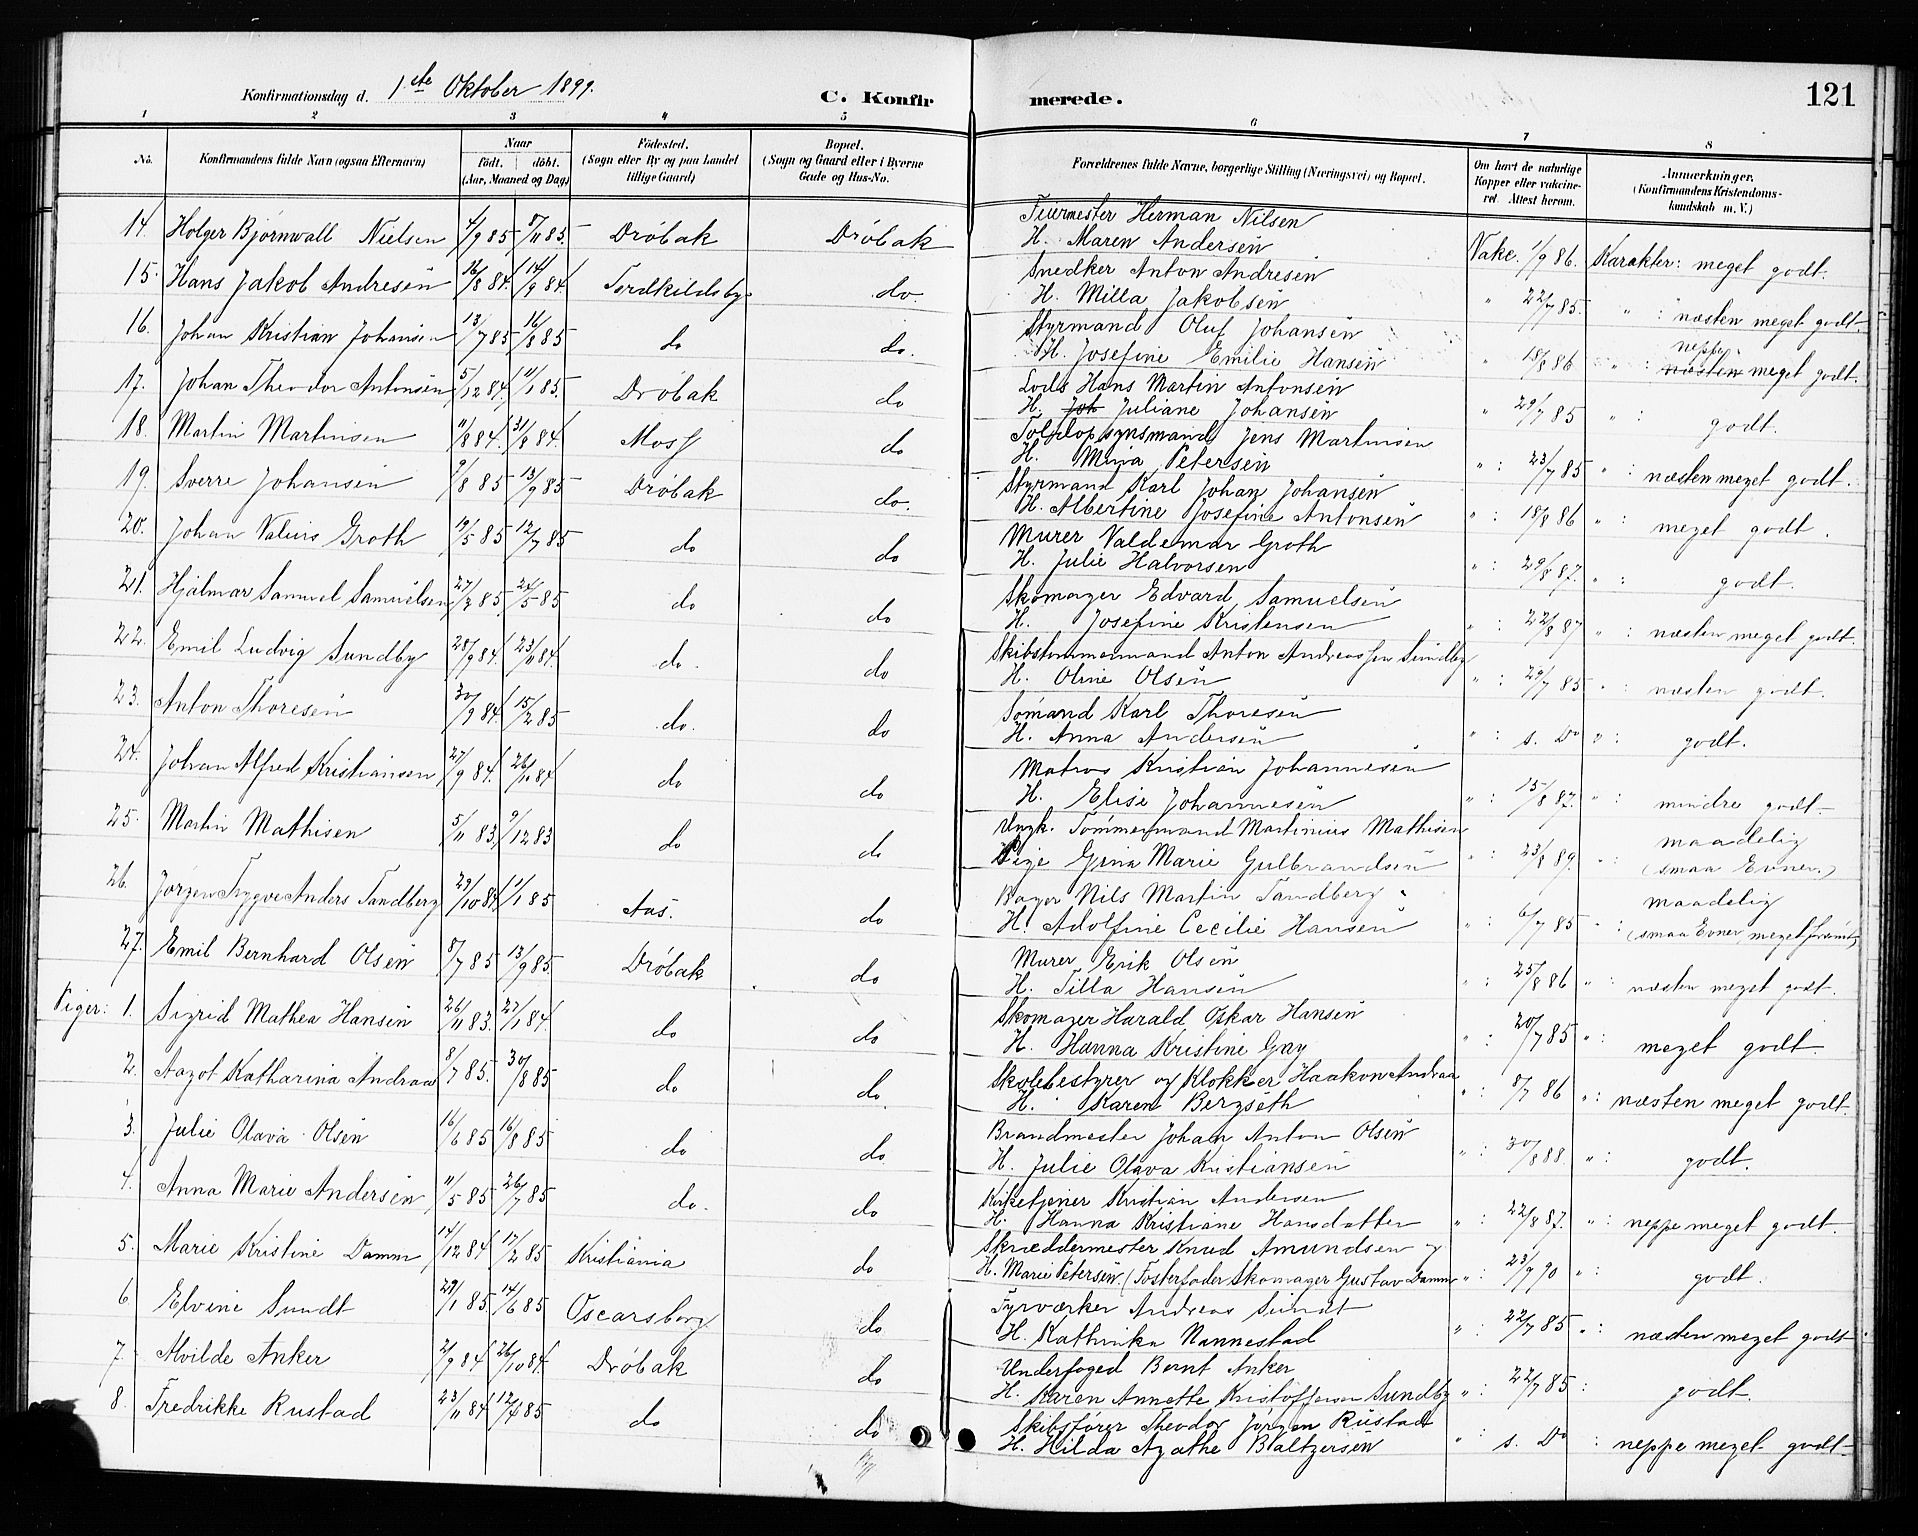 Konfirmationsdag d. 1ste Oktober 1899. C. Konfirmerede. 121
1 2 3 4 5 6 7 8
No. Konfirmandens fulde Navn (ogsaa Efternavn) Naar født. døbt. (Aar, Maaned og Dag) Fødested. (Sogn eller By og paa Landet tillige Gaard) Bopæl. (Sogn og Gaard eller i Byerne Gade og Hus-No. Forældrenes fulde Navne, borgerlige Stilling (Næringsvei) og Bopæl. Om havt de naturlige Kopper eller vakcineret. Attest herom. Anmærkninger. (Konfirmandens Kristendomskundskab m. V.)
14. Holger Bjørnwall Nielsen 4/9 85 8/11 85. Drøbak Drøbak Feiermester Herman Nilsen
H. Maren Andersen Vake. 1/9 86. Karakter: meget godt.
15. Hans Jakob Andresen 16/8 84. 14/9 84. Tordkildsby do. Snedker Anton Andresen
H. Milla Jakobsen " 22/7 85. " : næsten meget godt.
16. Johan Kristian Johansen 13/7 85 16/8 85 do do. Styrmand Oluf Johansen
H. Josefine Emilie Hansen " 18/8 86 " : næsten neppe meget godt.
17. Johan Theodor Antonsen 5/12 84. 11/1 85. Drøbak do Lods Hans Martin Antonsen
H. Joh Juliane Johansen " 29/7 85 " : godt.
18. Martin Martinsen 11/8 84. 31/8 84. Moss do Toldopsynsmand Jens Martinsen
H. Mina Petersen " : 23/7 85 " : næsten meget godt.
19. Sverre Johansen 9/8 85 13/9 85 Drøbak do. Styrmand Karl Johan Johansen
H. Albertine Josefine Antonsen " : 18/8 86 " : meget godt.
20. Johan Valius Groth 19/5 85 12/7 85 do do Murer Valdemar Groth
H. Julie Halvorsen " : 29/8 87. " : godt.
21. Hjalmar Samuel Samuelsen 27/2 85 24/5 85 do do Skomager Edvard Samuelsen
H. Josefine Kristensen " : 22/8 87 " : næsten meget godt.
22. Emil Ludvig Sundby 28/9 84. 23/11 84. do. do Skibstømmermand Anton Andreassen Sundby
H. Oline Olsen " : 29/7 85 " : næsten godt.
23. Anton Thoresen 30/9 84. 15/2 85 do. do Sømand Karl Thoresen
H. Anna Andersen " : s. Do " : godt.
24. Johan Alfred Kristiansen 27/9 84. 26/10 84 do do Matros Kristian Johannesen
H. Elise Johannesen " : 15/8 87. " : mindre godt.
25. Martin Mathisen 5/11 83. 9/12 83 do do Ungk. Tømmermand Martinius Mathisen
Pige Grina Marie Gulbrandsen " : 23/8 89. " : maadelig (smaa Evner.)
26. Jørgen Trygve Anders Tandberg 29/10 84. 11/1 85 Aas. do Bager Nils Martin Tandberg
H. Adolfine Cecilie Hansen " : 6/7 85 " : maadelig (smaa Evner meget
27. Emil Bernhard Olsen 8/7 85 13/9 85. Drøbak do Murer Erik Olsen
H. Tilla Hansen " : 25/8 86 " : næsten meget godt.
Piger: 1. Sigrid Mathea Hansen 26/11 83. 27/1 84. do do Skomager Harald Oskar Hansen
H. Hanna Kristine Gay " : 20/7 85 " : meget godt.
2. Aagot Katharina Andraa 8/7 85. 30/8 85 do do. Skolebestyrer og Klokker Haakon Andraa
H. Karen Bergseth " : 8/7 86 " : næsten meget godt.
3. Julie Olava Olsen 16/6 85 16/8 85 do do. Brandmester Johan Anton Olsen
H. Julie Olava Kristiansen " : 30/8 88. " : godt.
4. Anna Marie Andersen 11/5 85 26/7 85 do. do Kirketjener Kristian Andersen
H. Hanna Kristiane Hansdatter " : 22/8 87. " : neppe meget godt.
5. Marie Kristine Damm 14/12 84 17/2 85 Kristiania do Skræddermester Knud Amundsen
H. Marie Petersen (Fosterfader Skomager Gustav Damm " : 23/9 90 " : godt.
6 Elvine Sundt 29/1 85. 14/6 85 Oscarsborg do Fyrværker Andreas Sundt
H. Kathinka Nannestad " : 22/7 85 " : næsten meget godt
7 Alvilde Anker 2/9 84 26/10 84. Drøbak do Underfoged Bernt Anker
H. Karen Annette Kristoffersen Sundby " : 22/7 85 : godt.
8. Fredrikke Rustad 23/11 84 12/4 85 do do Skibsfører Theodor Jørgen Rustad
H. Hilda Agathe Baltzersen " : s. Do : neppe meget godt.